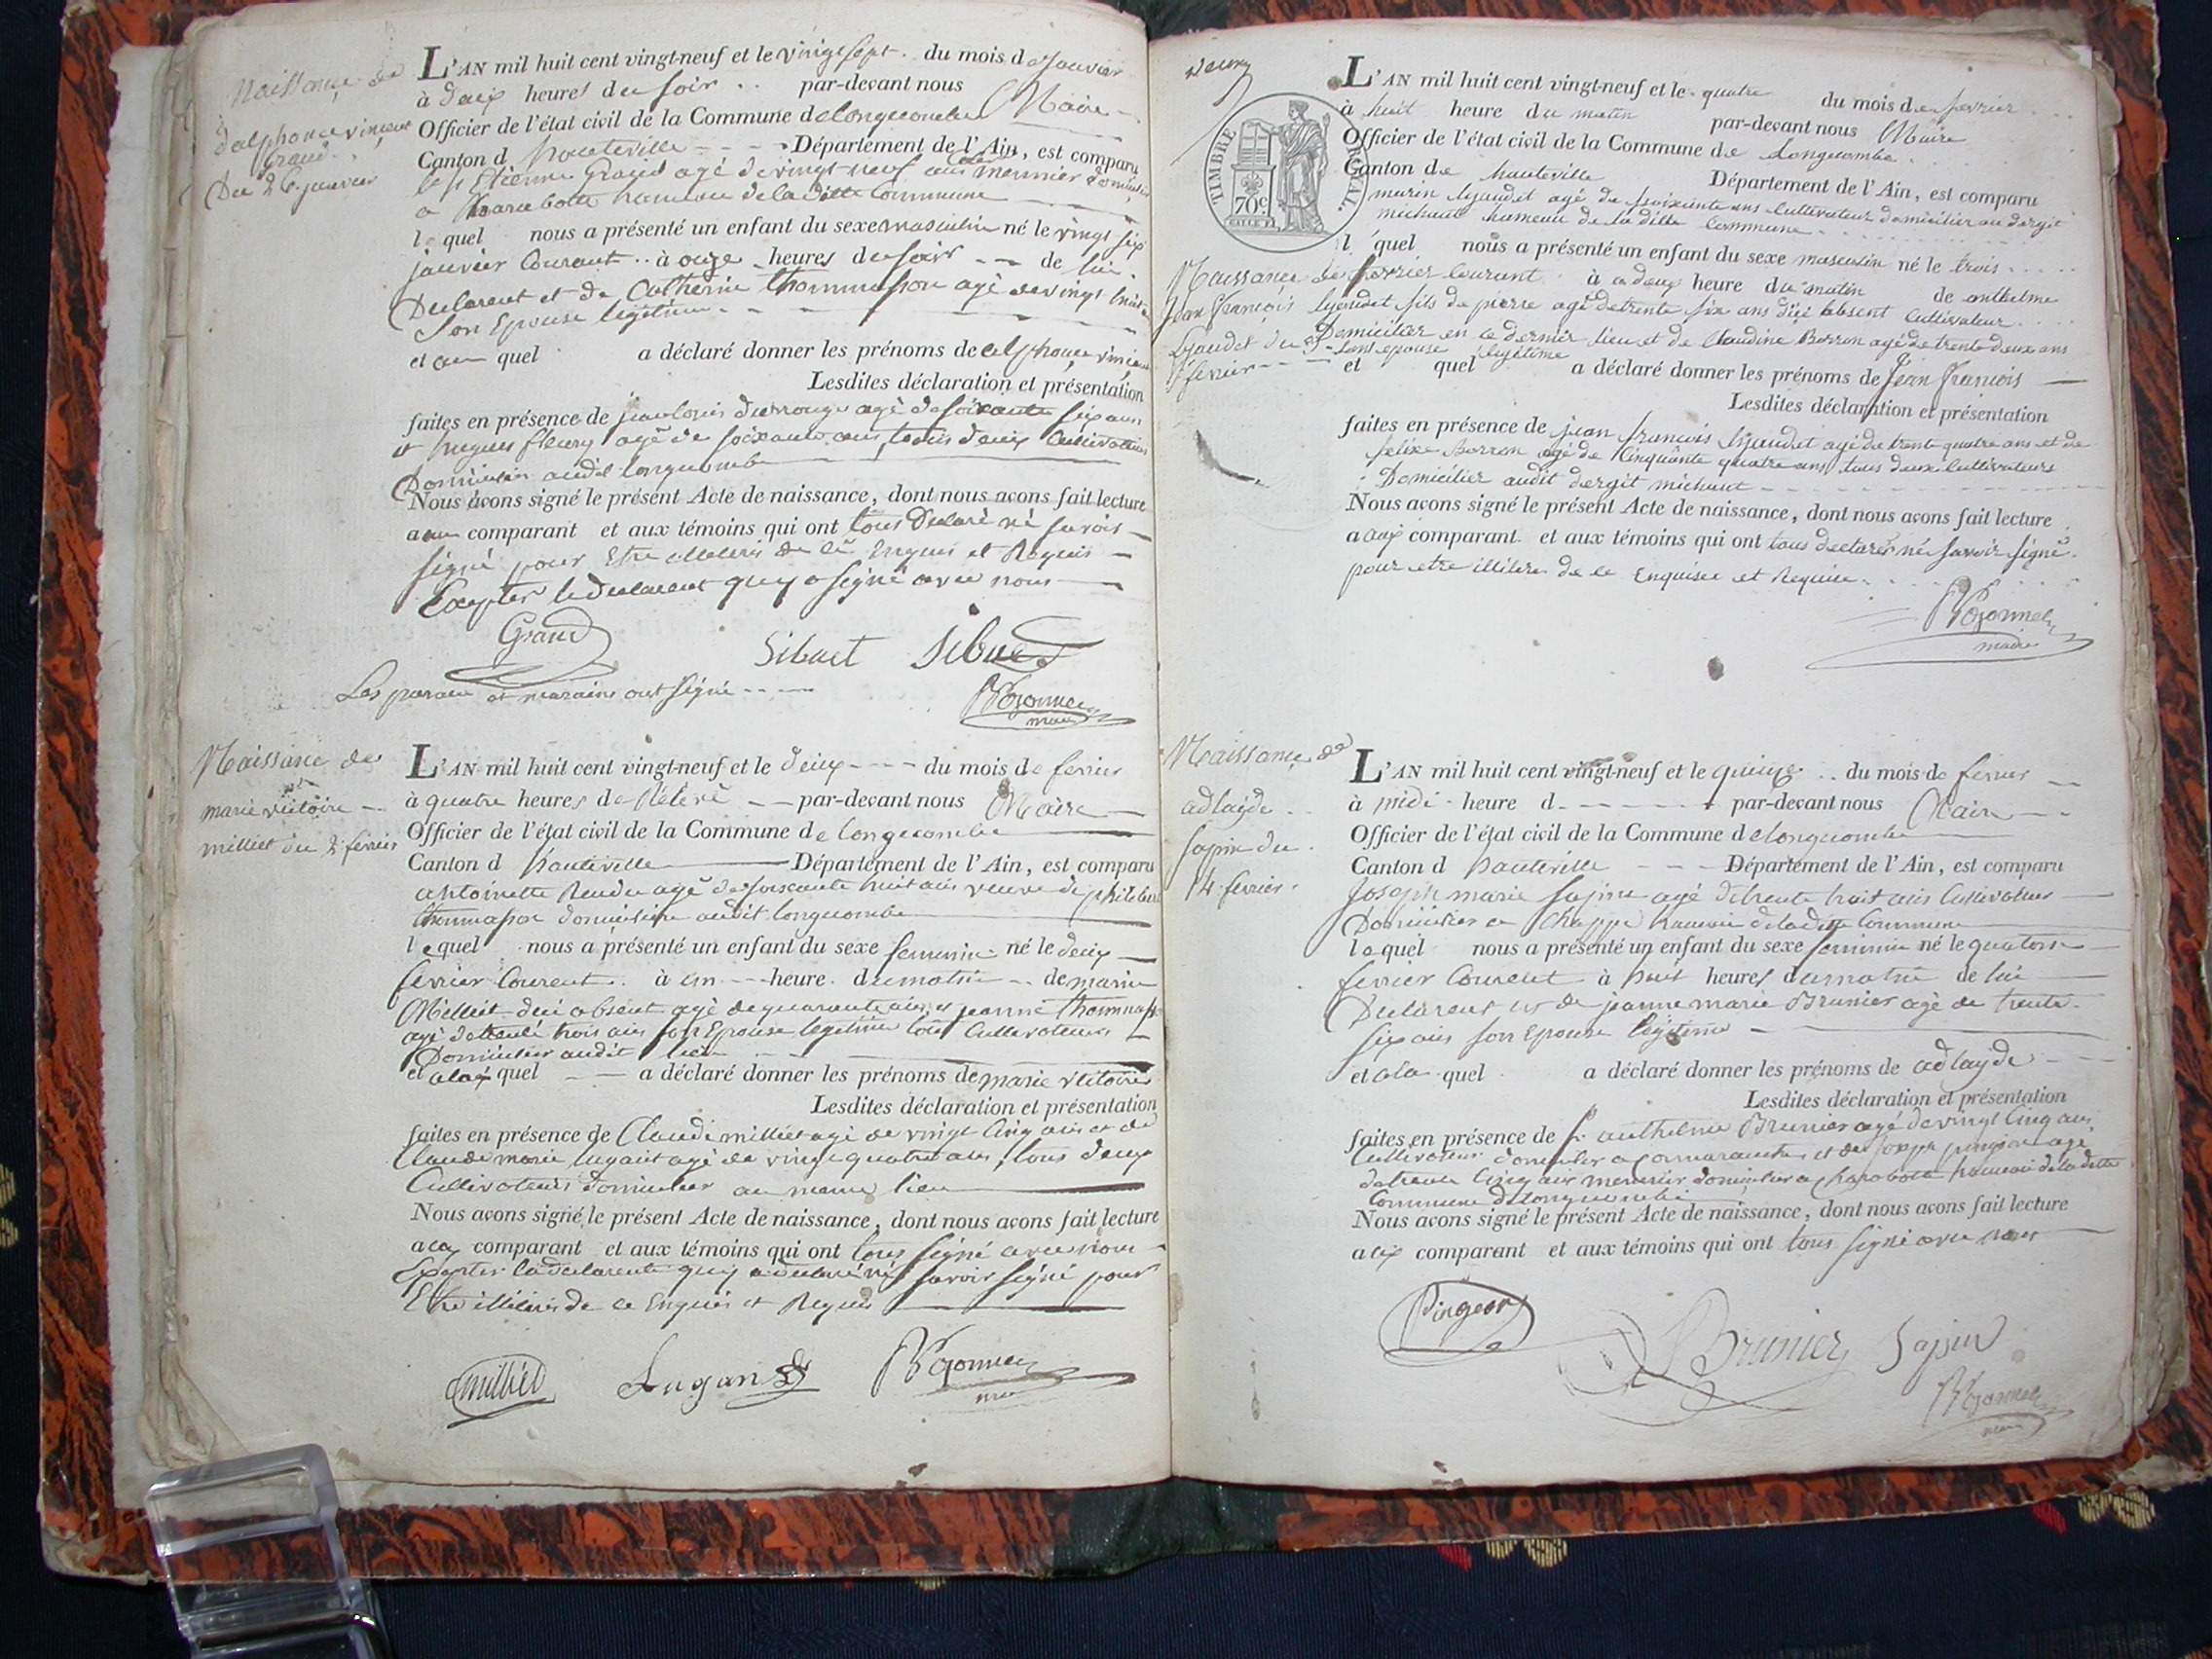 Naissance de
d'alphonce vincent
Grand
Du 26 janvier
L'AN mil huit cent vingt-neuf et le vingt sept du mois de janvier
à deux heures du soir par-devant nous Maire
Officier de l'état civil de la Commune de longecombe
Canton d hauteville Département de l'Ain, est comparu
Etienne Grand agé de vingt neuf ans meunier
a hameau de la ditte Commune
le quel nous a présenté un enfant du sexe masculin né le vingt six
janvier Courant à onze heures du soir de lui
Declarent et de Catherine thommasson agé de vingt huit
son Epouse legitime
et au quel a déclaré donner les prénoms de alphonce vincent
Lesdites déclaration et présentation
faites en présence de jean louis agé de soixante six ans
et hugues fleury agé de soixante ans, tous deux Cultivateurs
Domicilier audit longecombe
Nous avons signé le présent Acte de naissance, dont nous avons fait lecture
a au comparant et aux témoins qui ont tous declaré né savoir
signé pour Etre illeteris de ce Enquis et Requis
Excepter le declarent quy a signé avec nous
Grand Sibuet Sibuet
Les parain et maraine ont signé
maire
Naissance de
marie victoire
milliet du 2 fevrier
L'AN mil huit cent vingt-neuf et le deux du mois de fevrier
à quatre heures de par-devant nous Maire
Officier de l'état civil de la Commune de longecombe
Canton d hauteville Département de l'Ain, est comparu
antoinette agé de soixante huit ans veuve de philibert
thommasson domicilière audit longecombe
le quel nous a présenté un enfant du sexe feminin né le deux
fevrier Courent à un heure du matin de marin
Milliet d'ici absent agé de quarante ans et jeanne thommasson
agé de trente trois ans son Epouse legitime tous Cultivateurs
Domicilier audit lieu
et quel a déclaré donner les prénoms de marie victoire
Lesdites déclaration et présentation
faites en présence de Claude milliet agé de vingt cinq ans et de
Claude marie agé de vingt quatre ans, tous deux
Cultivateurs domicilier au meme lieu
Nous avons signé le présent Acte de naissance, dont nous avons fait lecture
a comparant et aux témoins qui ont tous signé avec nous
Excepter la declarente quy a declaré né savoir signé pour
Etre de ce Enquis et Requis
milliet Lugand
L'AN mil huit cent vingt-neuf et le quatre du mois de fevrier
à huit heure du matin par-devant nous Maire
Officier de l'état civil de la Commune de Longecombe
Canton de hauteville Département de l'Ain, est comparu
TIMBRE ROYAL.
70c
marin lyaudet agé de soixante ans Cultivateur domicilier au dergit
michaut hameau de la ditte Commune
l quel nous a présenté un enfant du sexe masculin né le trois
Naissance de
Jean François
Lyaudet du 3
fevrier
fevrier Courant à deux heure du matin de anthelme
lyaudet fils de pierre agé de trente six ans d'ici absent Cultivateur
Domicilier en ce dernier lieu et de Claudine Borron agé de trente deux ans
son epouse legitime
et quel a déclaré donner les prénoms de Jean François
Lesdites déclaration et présentation
faites en présence de jean francois lyaudet agé de trente quatre ans et de
felixe Borron agé de Cinquante quatre ans, tous deux Cultivateurs
Domicilier audit dergit michaut
Nous avons signé le présent Acte de naissance, dont nous avons fait lecture
a aux comparant et aux témoins qui ont tous declaré né savoir signé
pour etre illitere de ce Enquise et Requise
maire
Naissance de
adlayde
sapin du
14 fevrier
L'AN mil huit cent vingt-neuf et le quinze du mois de fevrier
à midi heure d par-devant nous Maire
Officier de l'état civil de la Commune de longecombe
Canton d hauteville Département de l'Ain, est comparu
Joseph marie sapin agé de trente huit ans Cultivateur
Domicilier a Chappe hameau de la ditte Commune
le quel nous a présenté un enfant du sexe feminin né le quatorse
fevrier Courent à huit heures du matin de lui
Declarent et de jeanne marie Brunier agé de trente
six ans son Epouse legitime
et a la quel a déclaré donner les prénoms de adlayde
Lesdites déclaration et présentation
faites en présence de anthelme Brunier agé de vingt cinq ans
Cultivateur domicilier a et de joseph pingeon agé
de trente cinq ans meunier domicilier a hameau de la ditte
Commune de longecombe
Nous avons signé le présent Acte de naissance, dont nous avons fait lecture
a aux comparant et aux témoins qui ont tous signé avec nous
Pingeon Brunier Sapin